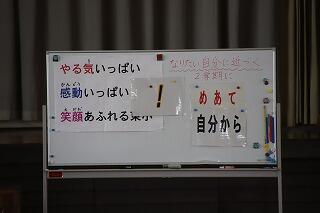 やる気いっぱい
感動いっぱい
笑顔あふれる栗小
!
なりたい自分に近づく
2学期に
めあて
自分から